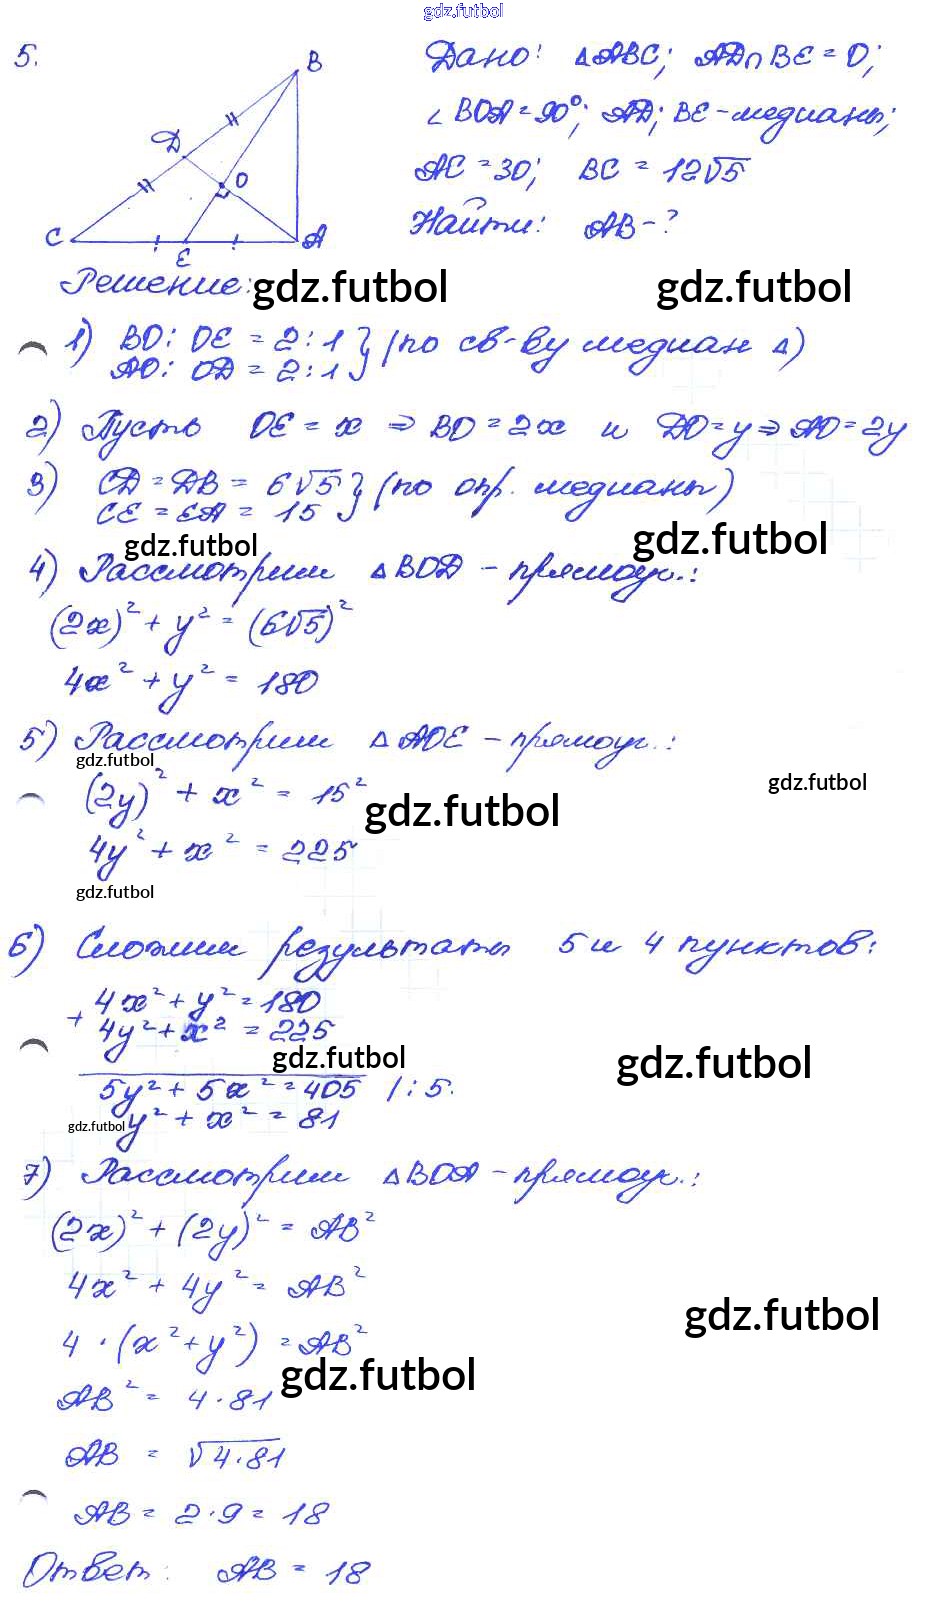 gdz.futbol
5.
B
D
O
C
E
A
Дано: △ABC; AD∩BE=O;
∠BOA=90°; AD; BE-медианы;
AC=30; BC=12√5
Найти: AB-?
Решение:
gdz.futbol
gdz.futbol
1) BO:OE=2:1 } (по св-ву медиан △)
AO:OD=2:1
2) Пусть OE=x ⇒ BO=2x и DO=y ⇒ AO=2y
3) CD=DB=6√5 } (по опр. медианы)
CE=EA=15
gdz.futbol
gdz.futbol
4) Рассмотрим △BOD - прямоуг.:
(2x)²+y²=(6√5)²
4x²+y²=180
5) Рассмотрим △AOE - прямоуг.:
gdz.futbol
gdz.futbol
(2y)²+x²=15²
gdz.futbol
4y²+x²=225
gdz.futbol
6) Сложим результаты 5 и 4 пунктов:
+ 4x²+y²=180
4y²+x²=225
gdz.futbol
gdz.futbol
5y²+5x²=405 /:5.
gdz.futbol
y²+x²=81
7) Рассмотрим △BOA-прямоуг.:
(2x)²+(2y)²=AB²
4x²+4y²=AB²
gdz.futbol
4·(x²+y²)=AB²
gdz.futbol
AB²=4·81
AB=√4·81
AB=2·9=18
Ответ: AB=18